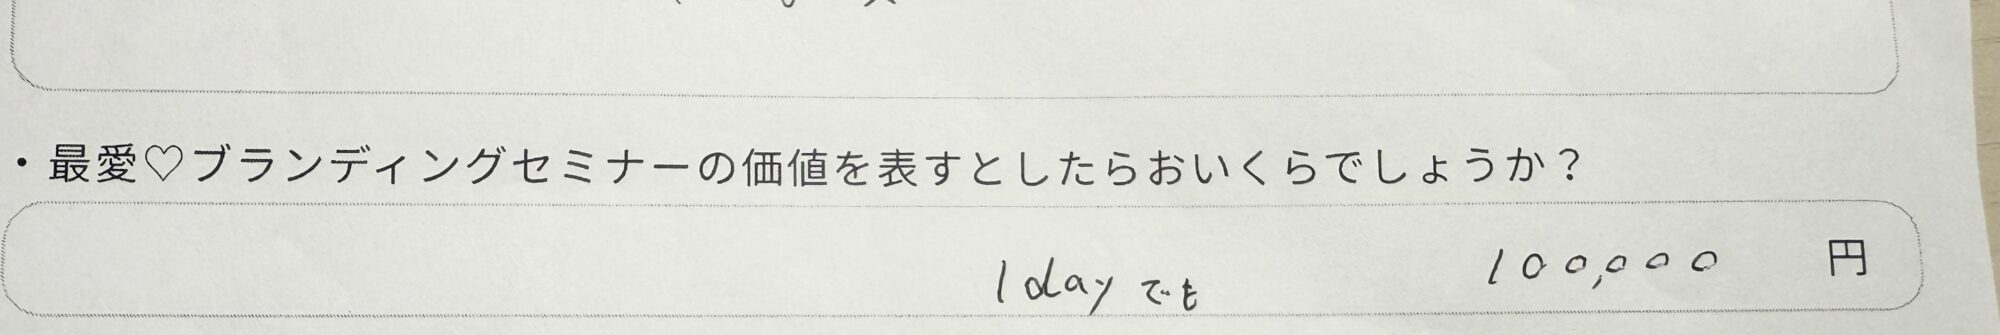 ・最愛♡ブランディングセミナーの価値を表すとしたらおいくらでしょうか？
1dayでも 100,000 円